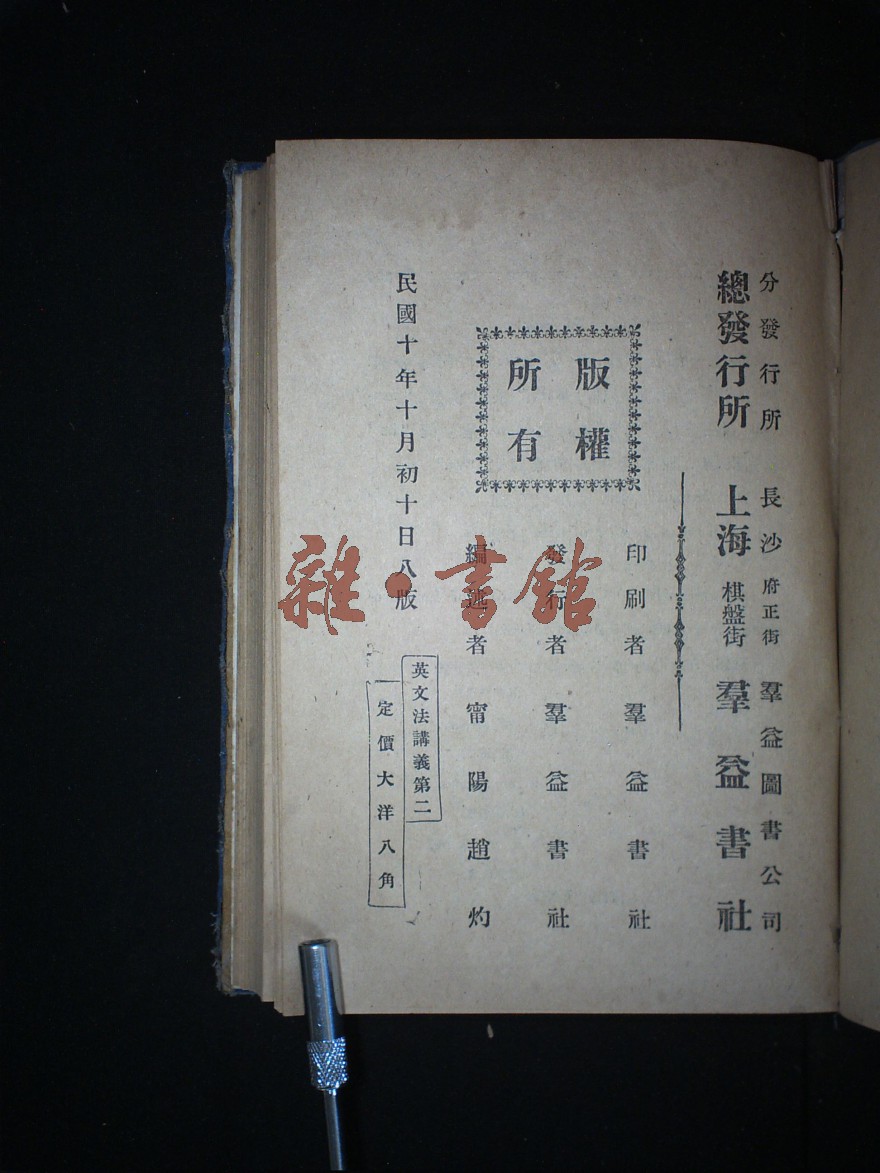 民國十年十月初十日八版
英文法講義第二
定價大洋八角
版權
所有
編述者 甯陽趙灼
發行者 羣益書社
印刷者 羣益書社
總發行所 上海棋盤街 羣益書社
分發行所 長沙府正街 羣益圖書公司
雜·書館